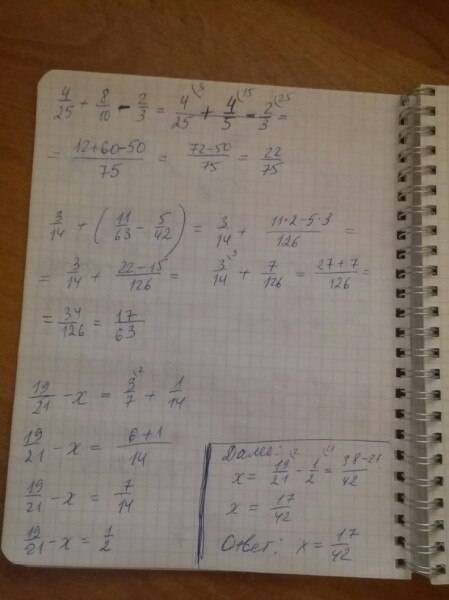 4/25 + 8/10 - 2/3 = 4/25 (3 + 4/5 (15 - 2/3 (25 =
= (12+60-50)/75 = (72-50)/75 = 22/75
3/14 + (11/63 - 5/42) = 3/14 + (11·2-5·3)/126 =
= 3/14 + (22-15)/126 = 3/14 + 7/126 = (27+7)/126 =
= 34/126 = 17/63
19/21 - x = 3/7 (2 + 1/14
19/21 - x = (6+1)/14
19/21 - x = 7/14
19/21 - x = 1/2
Далее:
x = 19/21 (2 - 1/2 (21 = (38-21)/42
x = 17/42
Ответ: x = 17/42